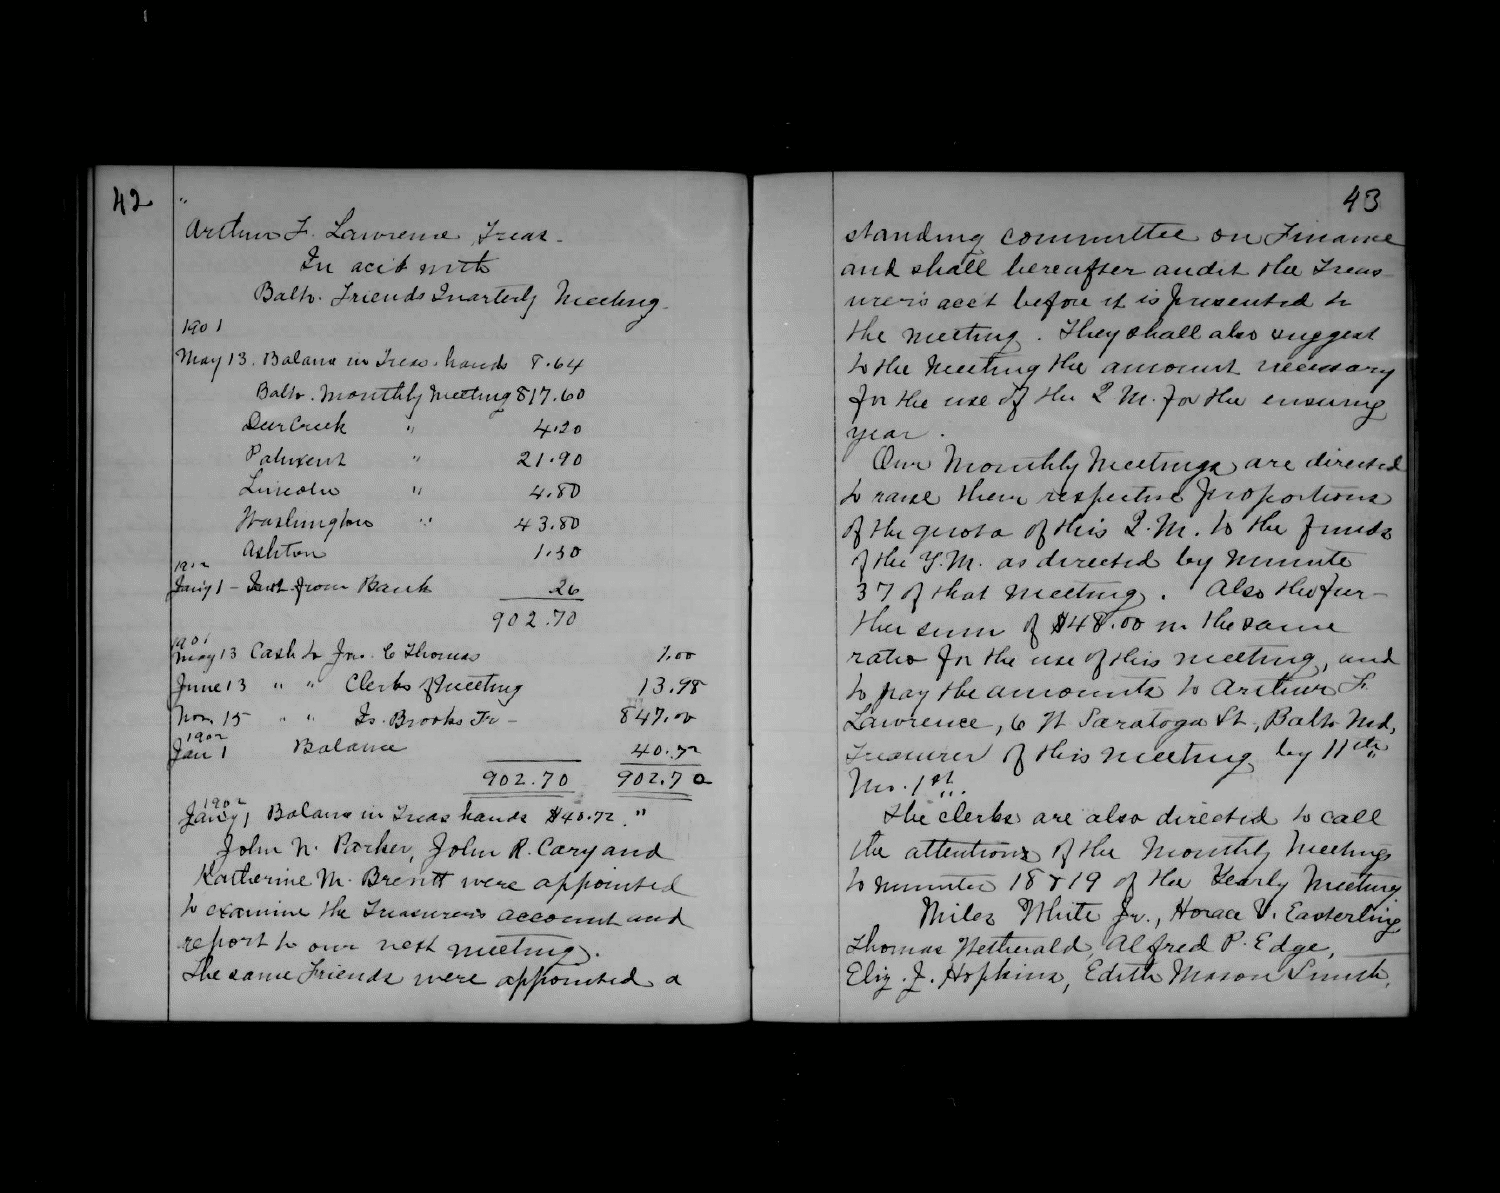 42
"
Arthur F. Lawrence, Treas.
In acct with
Balto. Friends Quarterly Meeting.
1901
May 13. Balance in Treas. hands 8.64
Balto. Monthly Meeting 817.60
Deer Creek " 4.20
Patuxent " 21.90
Lincoln " 4.80
Washington " 43.80
Ashton 1.50
1902
Jan'y 1 - Int from Bank 26
902.70
1901
May 13 Cash to Jno. C Thomas 1.00
June 13 " " Clerks of Meeting 13.98
Nov 15 " " Is. Brooks Jr - 847.00
1902
Jan 1 Balance 40.72
902.70 902.70
1902
Jan'y 1, Balance in Treas hands $40.72. "
John N. Parker, John R. Cary and
Katherine M. Brentt were appointed
to examine the Treasurer's account and
report to our next meeting.
The same Friends were appointed a
43
standing committee on Finance
and shall hereafter audit the Treas-
urer's acct before it is presented to
the meeting. They shall also suggest
to the Meeting the amount necessary
for the use of the Q M. for the ensuing
year.
Our Monthly Meetings are directed
to raise their respective proportions
of the quota of this Q.M. to the funds
of the Y.M. as directed by minute
37 of that meeting. Also the fur-
ther sum of $48.00 in the same
ratio for the use of this meeting, and
to pay the amounts to Arthur F.
Lawrence, 6 W Saratoga St., Balto Md,
Treasurer of this meeting by 11th
Mo. 1st.
The clerks are also directed to call
the attention of the Monthly Meetings
to minutes 18 & 19 of the Yearly Meeting
Miles White Jr., Horace V. Easterling
Thomas Wetherald, Alfred P. Edge,
Eliz. J. Hopkins, Edith Mason Smith,